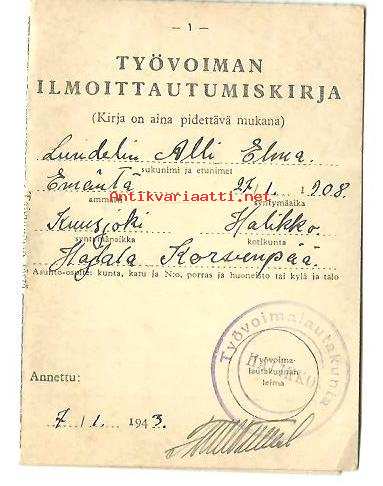 — 1 —
TYÖVOIMAN
ILMOITTAUTUMISKIRJA
(Kirja on aina pidettävä mukana)
Lundelin Alli Elma.
sukunimi ja etunimet
Emäntä 27/1. 1908.
Antikvariaatti.net
ammatti syntymäaika
Kuusjoki Halikko.
syntymäpaikka kotikunta
Hajala Korvenpää.
Asunto-osoite: kunta, katu ja N:o, porras ja huoneisto tai kylä ja talo
Työvoimalautakunta
HALIKKO
Työvoima-
lautakunnan
leima
Annettu:
7/1. 1943.